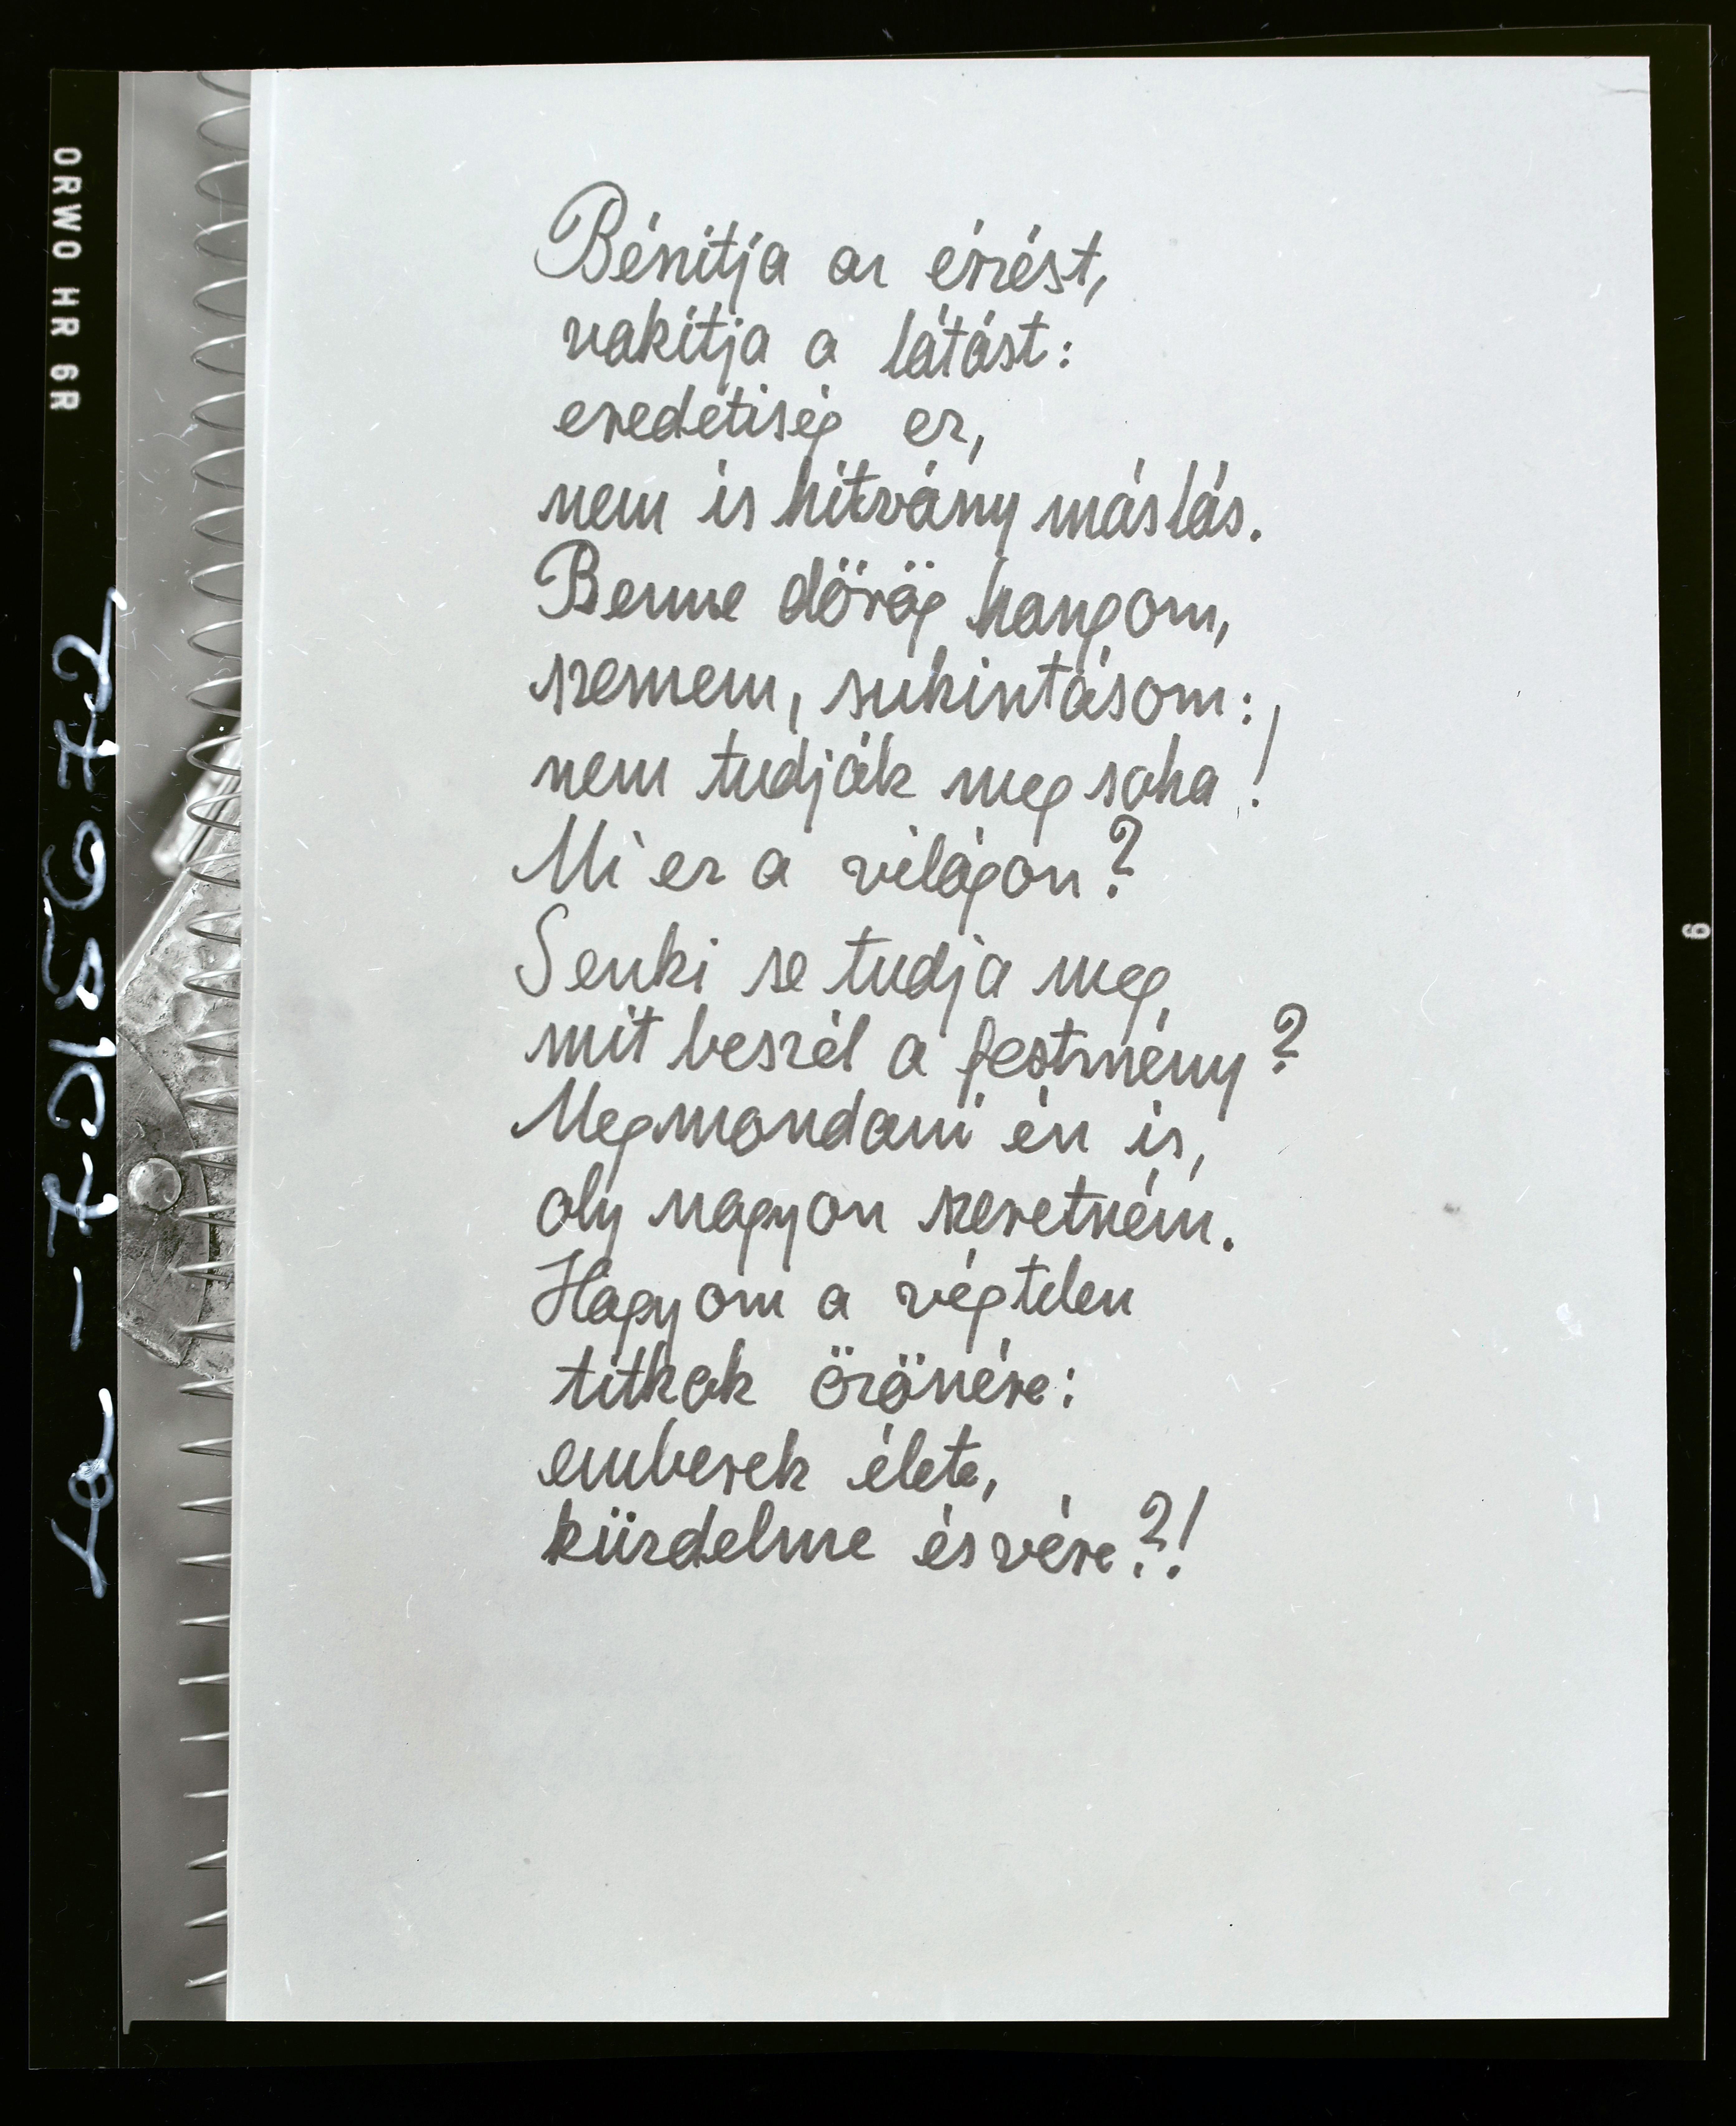 Bénitja az érzést,
vakitja a látást:
eredetiség ez,
nem is hitvány máslás.
Benne dörög hangom,
szemem, suhintásom:
nem tudják meg soha!
Mi ez a világon?
Senki se tudja meg,
mit beszél a festmény?
Megmondani én is,
oly nagyon szeretném.
Hagyom a végtelen
titkok özönére:
emberek élete,
küzdelme és vére?!
ORWO HR 6R
6